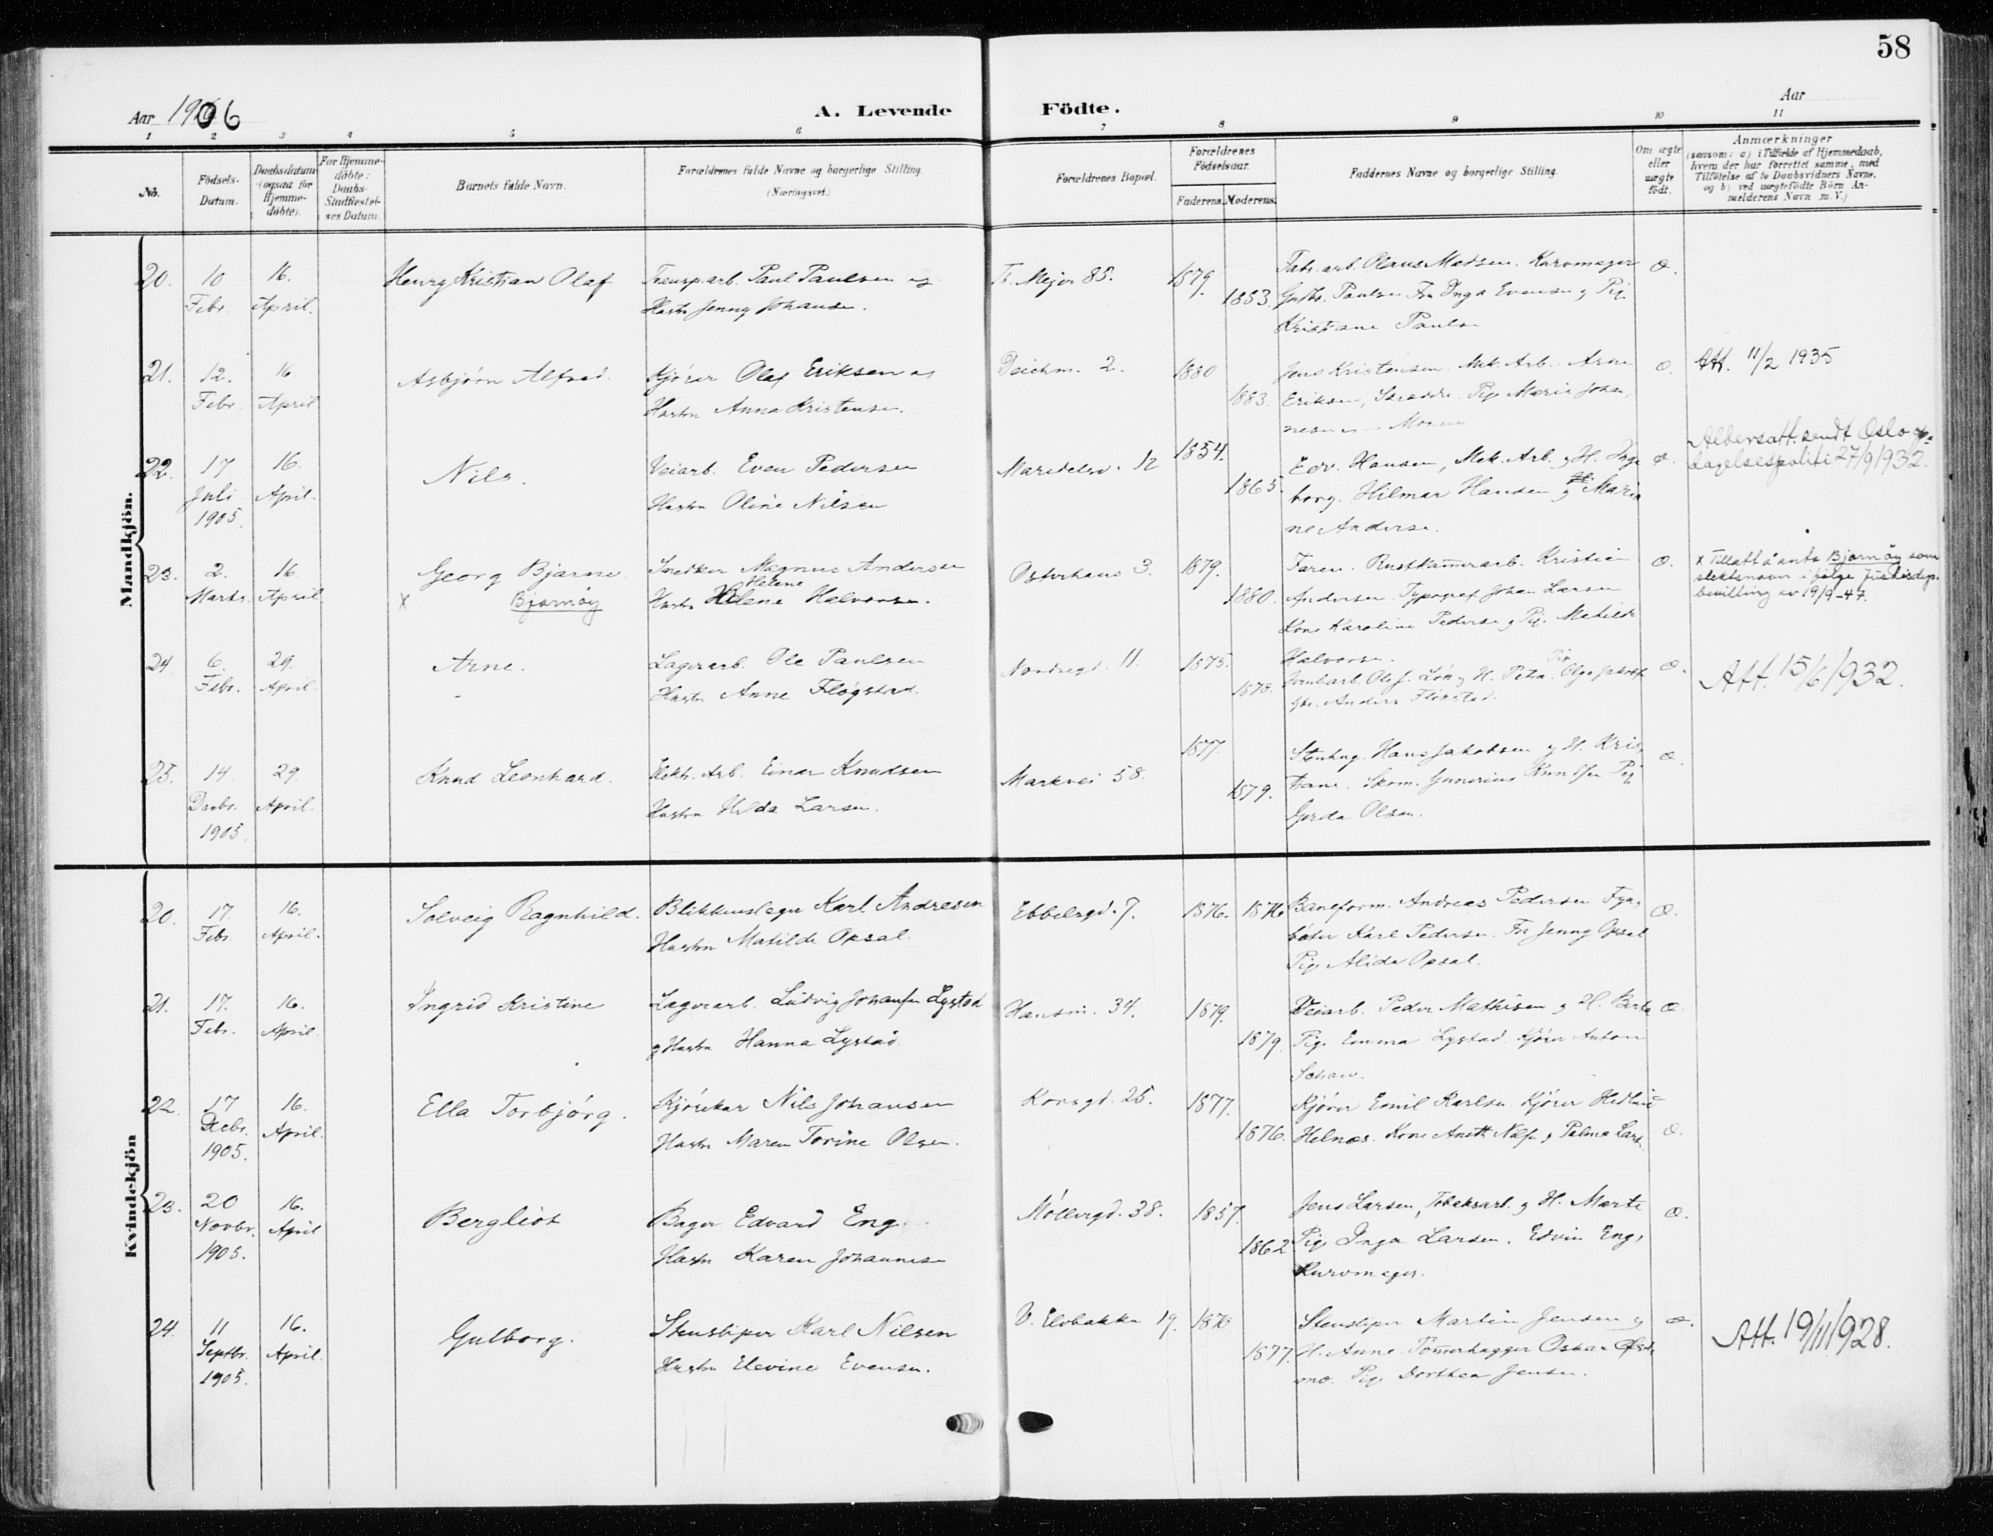 58
Aar 1906
A. Levende Födte.
Aar
1 2 3 4 5 6 7 8 9 10 11
No.
Födsels-
Datum.
Daabsdatum
(ogsaa for
Hjemme-
döbte).
For Hjemme-
döbte:
Daabs-
Stadfæstel-
ses Datum.
Barnets fulde Navn.
Forældrenes fulde Navne og borgerlige Stilling.
(Næringsvei.)
Forældrenes Bopæl.
Forældrenes
Födselsaar.
Faderens. Moderens.
Faddernes Navne og borgerlige Stilling.
Om ægte
eller
uægte
födt.
Anmærkninger
(saasom: a) i Tilfælde af Hjemmedaab,
hvem der har forrettet samme, med
Tilföielse af to Daabsvidners Navne.
og b) ved uægtefödte Börn An-
melderens Navn m.V.)
Mandkjön.
20. 10 Febr. 16. April. Henry Kristian Olaf
Transp.arb. Paul Paulsen og
Hustr Jenny Johansen.
Th. Mejer 85. 1879. 1883.
Fabr.arb. Olaus Madsen. Kurvmager
Gustv. Paulsen Fru Inga Evensen g Pig.
Kristiane Paulsen
Æ.
21. 12. Febr. 16 April Asbjørn Alfred.
Kjører Olaf Eriksen og
Hustr Anna Kristensen.
Deichm. 2. 1880 1883.
Jens Kristensen. Mek. Arb. Arne
Eriksen, Skrædder. Pige Marie Johan
Æ.
Att. 11/2 1935
22. 17. Juli 1905. 16. April. Nils.
Veiarb. Even Pedersen
Hustru Oline Nilsen
Maridalsv. 12 1854. 1865.
Edv. Hansen, Mek. Arb. g H. Inge
borg. Hilmar Hansen g H. Maria
ne Andersen.
Æ.
Aldersatt. sendt Oslo op-
dagelsespoliti 27/9 1932.
23. 2. Marts. 16. April Georg Bjarne.
x Bjarnøy
Snedker Magnus Andersen
Helene
Hustr Helene Halvorsen.
Osterhaus 3. 1879. 1880.
Faren. Rustkammerarb. Kristian
Andersen. Typograf Johan Larsen
Kone Karoline Pedersen g Pig. Matilde
Halvorsen.
Æ.
x Tillatt å anta Bjarnøy som
slektsnavn i følge Justisdep.
bevilling av 19/9-47.
24 6. Febr. 29. April. Arne.
Lagerarb. Ole Paulsen
Hustr Anne Fløgstad.
Nordregd. 11. 1875. 1878.
Anders Fløgstad.
Æ.
Att. 15/6 1932.
25. 14 Decbr. 1905. 29. April. Knud Leonhard.
Elektr. Arb. Einar Knudsen
Hustru Hilda Larsen.
Markvei 58. 1877. 1879.
Stenhug. Hans Jakobsen g H. Kris
tiane. Skom. Gunerius Knudsen Pig
Gerda Olsen.
Æ.
Kvindekjön
20. 17. Febr. 16. April. Solveig Ragnhild.
Blikkenslager Karl Andresen
Hustru Matilde Opsal.
Ebbelsgd. 7. 1876. 1876
Baneform. Andreas Pedersen Fyr
bøter Karl Pedersen. Fr Jenny Opsal
Pig. Alida Opsal.
Æ.
21. 17. Febr. 16. April. Ingrid Kristine
Lagerarb. Ludvig Johansen Lystad
g Hustru Hanna Lystad.
Hausm. 34. 1879. 1879.
Veiarb. Peder Mathisen g H. Berta
Pig. Emma Lystad. Kjører Anton
Æ.
22. 17 Decbr. 1905. 16. April. Ella Torbjørg.
Kjørekar Nils Johansen
Hustr Maren Torine Olsen.
Korsgd. 25. 1877. 1876.
Kjører Emil Karlsen Kjører Hedluie
Helnæs. Kone Anette Nilsen g Palma Lars
Æ.
23. 20 Novbr. 1905. 16. April Bergliot
Bager Edvard Eng.
Hustr Karen Johannesen
Møllergd. 38. 1857. 1862
Jens Larsen, Tobaksarb. g H. Marte
Pig. Inga Larsen. Edvin Eng,
Kurvmager.
Æ.
24. 11 Septbr. 1905. 16. April. Gulborg.
Stensliper Karl Nilsen
Hustru Elevine Evensen.
V. Elvbakke 19. 1876 1877.
Stensliper Martin Jensen g
H. Anne. Tømmerhugger Oskar
mo. Pig. Dorthea Jensen.
Æ.
Att. 19/11 1928.